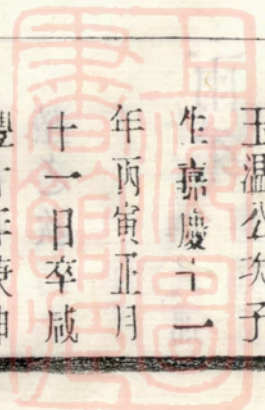 玉溫公次子
生嘉慶十一
年丙寅正月
十一日卒咸
豐十年庚申